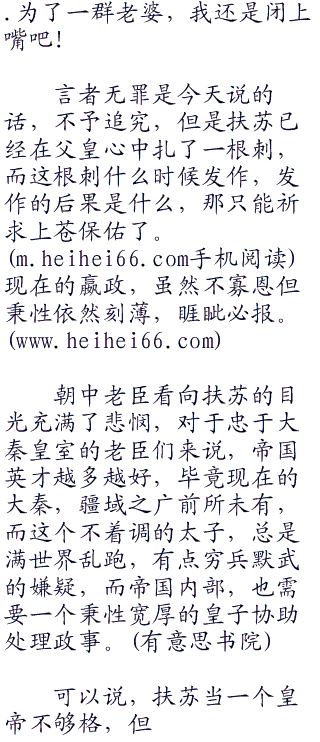 .为了一群老婆，我还是闭上
嘴吧！
言者无罪是今天说的
话，不予追究，但是扶苏已
经在父皇心中扎了一根刺，
而这根刺什么时候发作，发
作的后果是什么，那只能祈
求上苍保佑了。
(m.heihei66.com手机阅读)
现在的嬴政，虽然不寡恩但
秉性依然刻薄，睚眦必报。
(www.heihei66.com)
朝中老臣看向扶苏的目
光充满了悲悯，对于忠于大
秦皇室的老臣们来说，帝国
英才越多越好，毕竟现在的
大秦，疆域之广前所未有，
而这个不着调的太子，总是
满世界乱跑，有点穷兵默武
的嫌疑，而帝国内部，也需
要一个秉性宽厚的皇子协助
处理政事。(有意思书院)
可以说，扶苏当一个皇
帝不够格，但